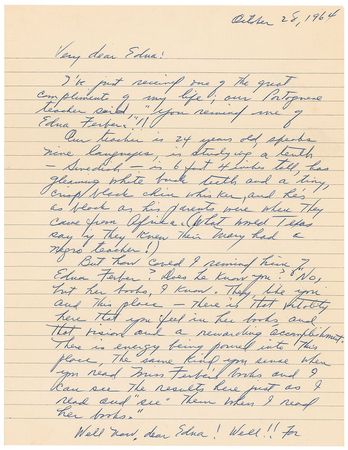 October 28, 1964
Very dear Edna!
I've just received one of the great
compliments of my life, our Portognese
teacher said "you remind me of
Edna Ferber"!!
Our teacher is 24 years old, speaks
nine languages, is studying a tenth
- Swedish - is 6 feet 4 inches tall has
gleaming white buck teeth and a tiny,
crisp black chin whisker, and he's
as black as his parents were when they
came from Africa. (What would Texas
say if they knew their Mary had a
negro teacher!)
But how could I remind him of
Edna Ferber? Does he know you? "No,
but her books, I know. They like you
and this place - there is that vitality
here that you feel in her books and
that vision and a rewarding accomplishment.
There is energy being poured into this
place, the same kind you sense when
you read Miss Ferber's books and I
can see the results here just as I
read and "see" them when I read
her books."
Well now, dear Edna! Well!! For